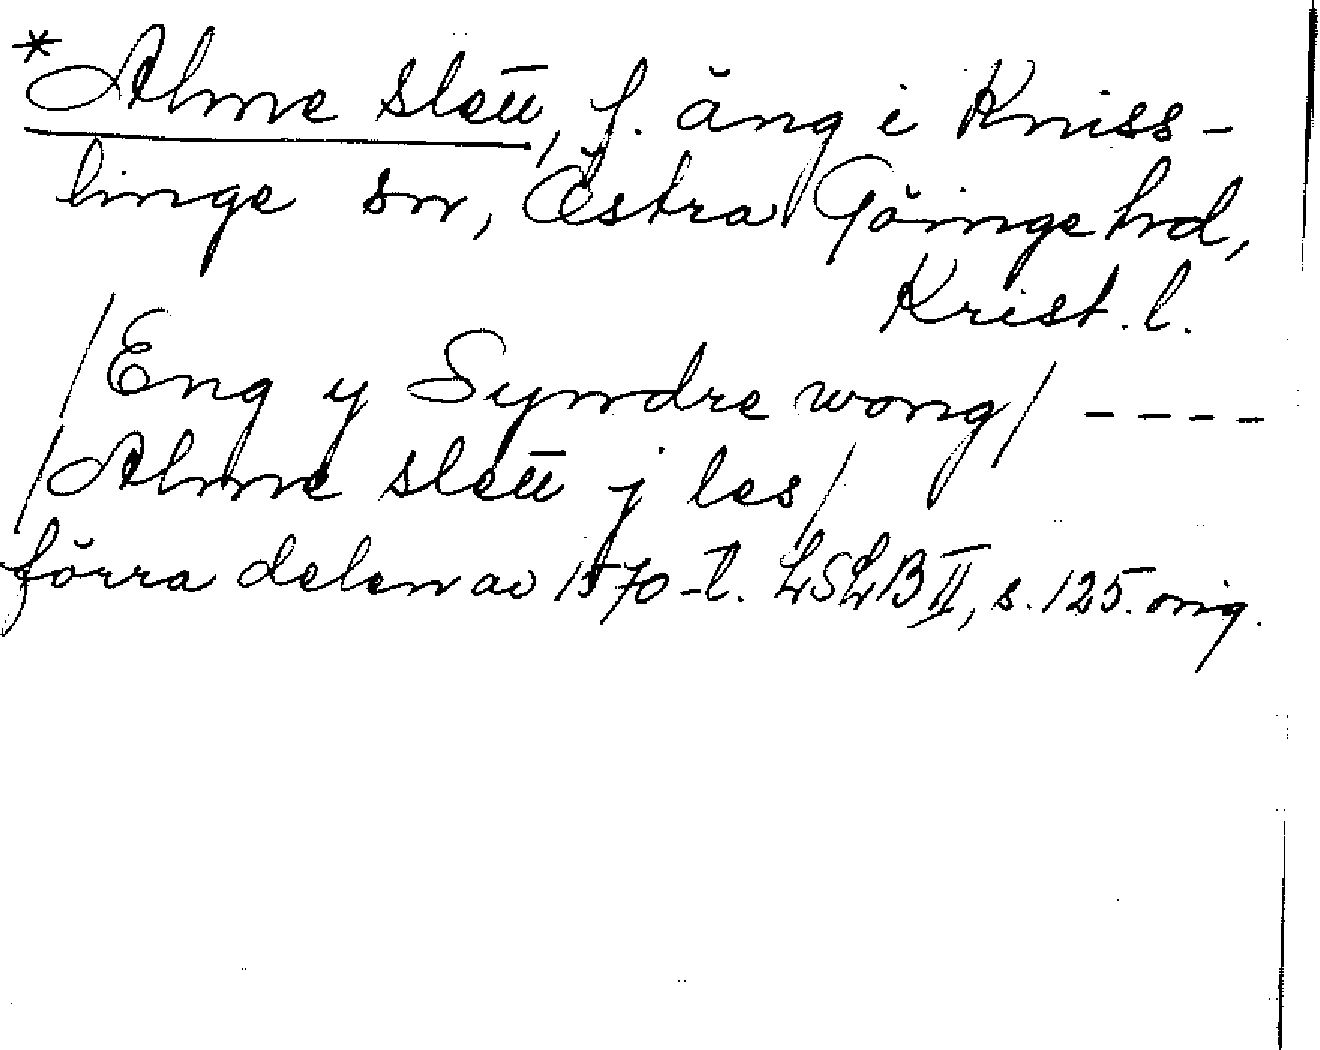 *Alme slett, f. äng i Kniss-
linge sn, Östra Göinge hrd,
Krist. l.
/Eng y Syndre wong/ ----
/Alme slett j les/
förra delen av 1570-t. LSLB II, s. 125. orig.